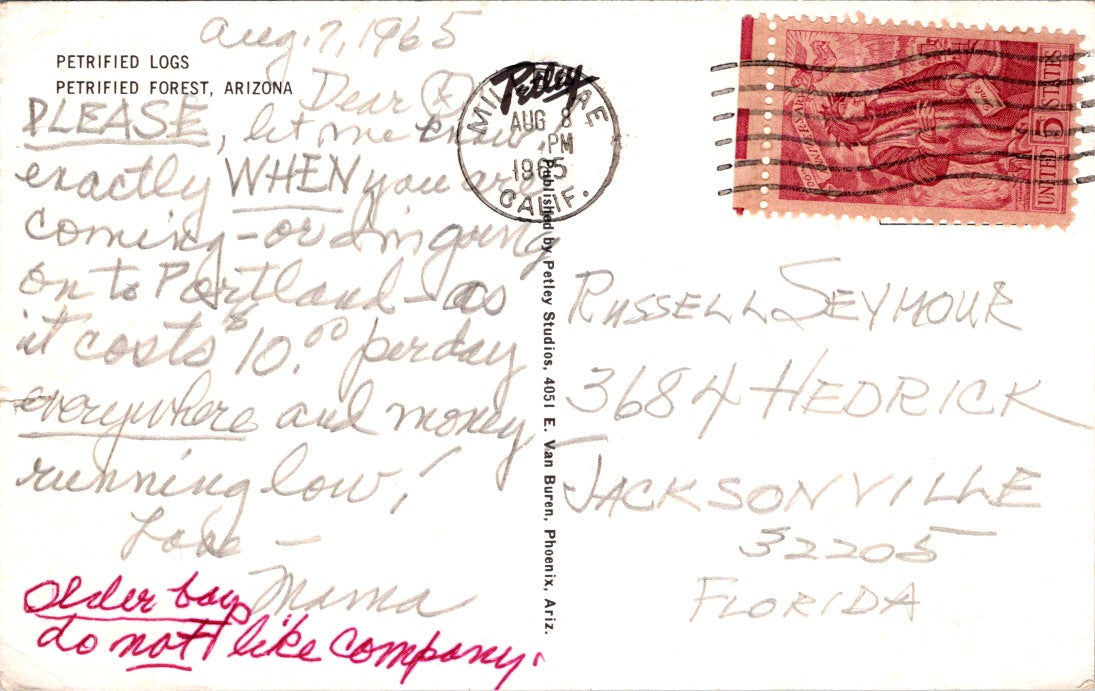 Aug. 7, 1965
PETRIFIED LOGS
PETRIFIED FOREST, ARIZONA
Dear
PLEASE, let me know
exactly WHEN you are
coming - or I'm going
on to Portland - as
it costs $10.00 per day
everywhere and money
running low!
Love -
Mama
older boys
do not like company.
Petley
MILL VALLEY
AUG 8
PM
1965
CALIF.
Published by Petley Studios, 4051 E. Van Buren, Phoenix, Ariz.
UNITED STATES
5
RUSSELL SEYMOUR
3684 HEDRICK
JACKSONVILLE
32205
FLORIDA